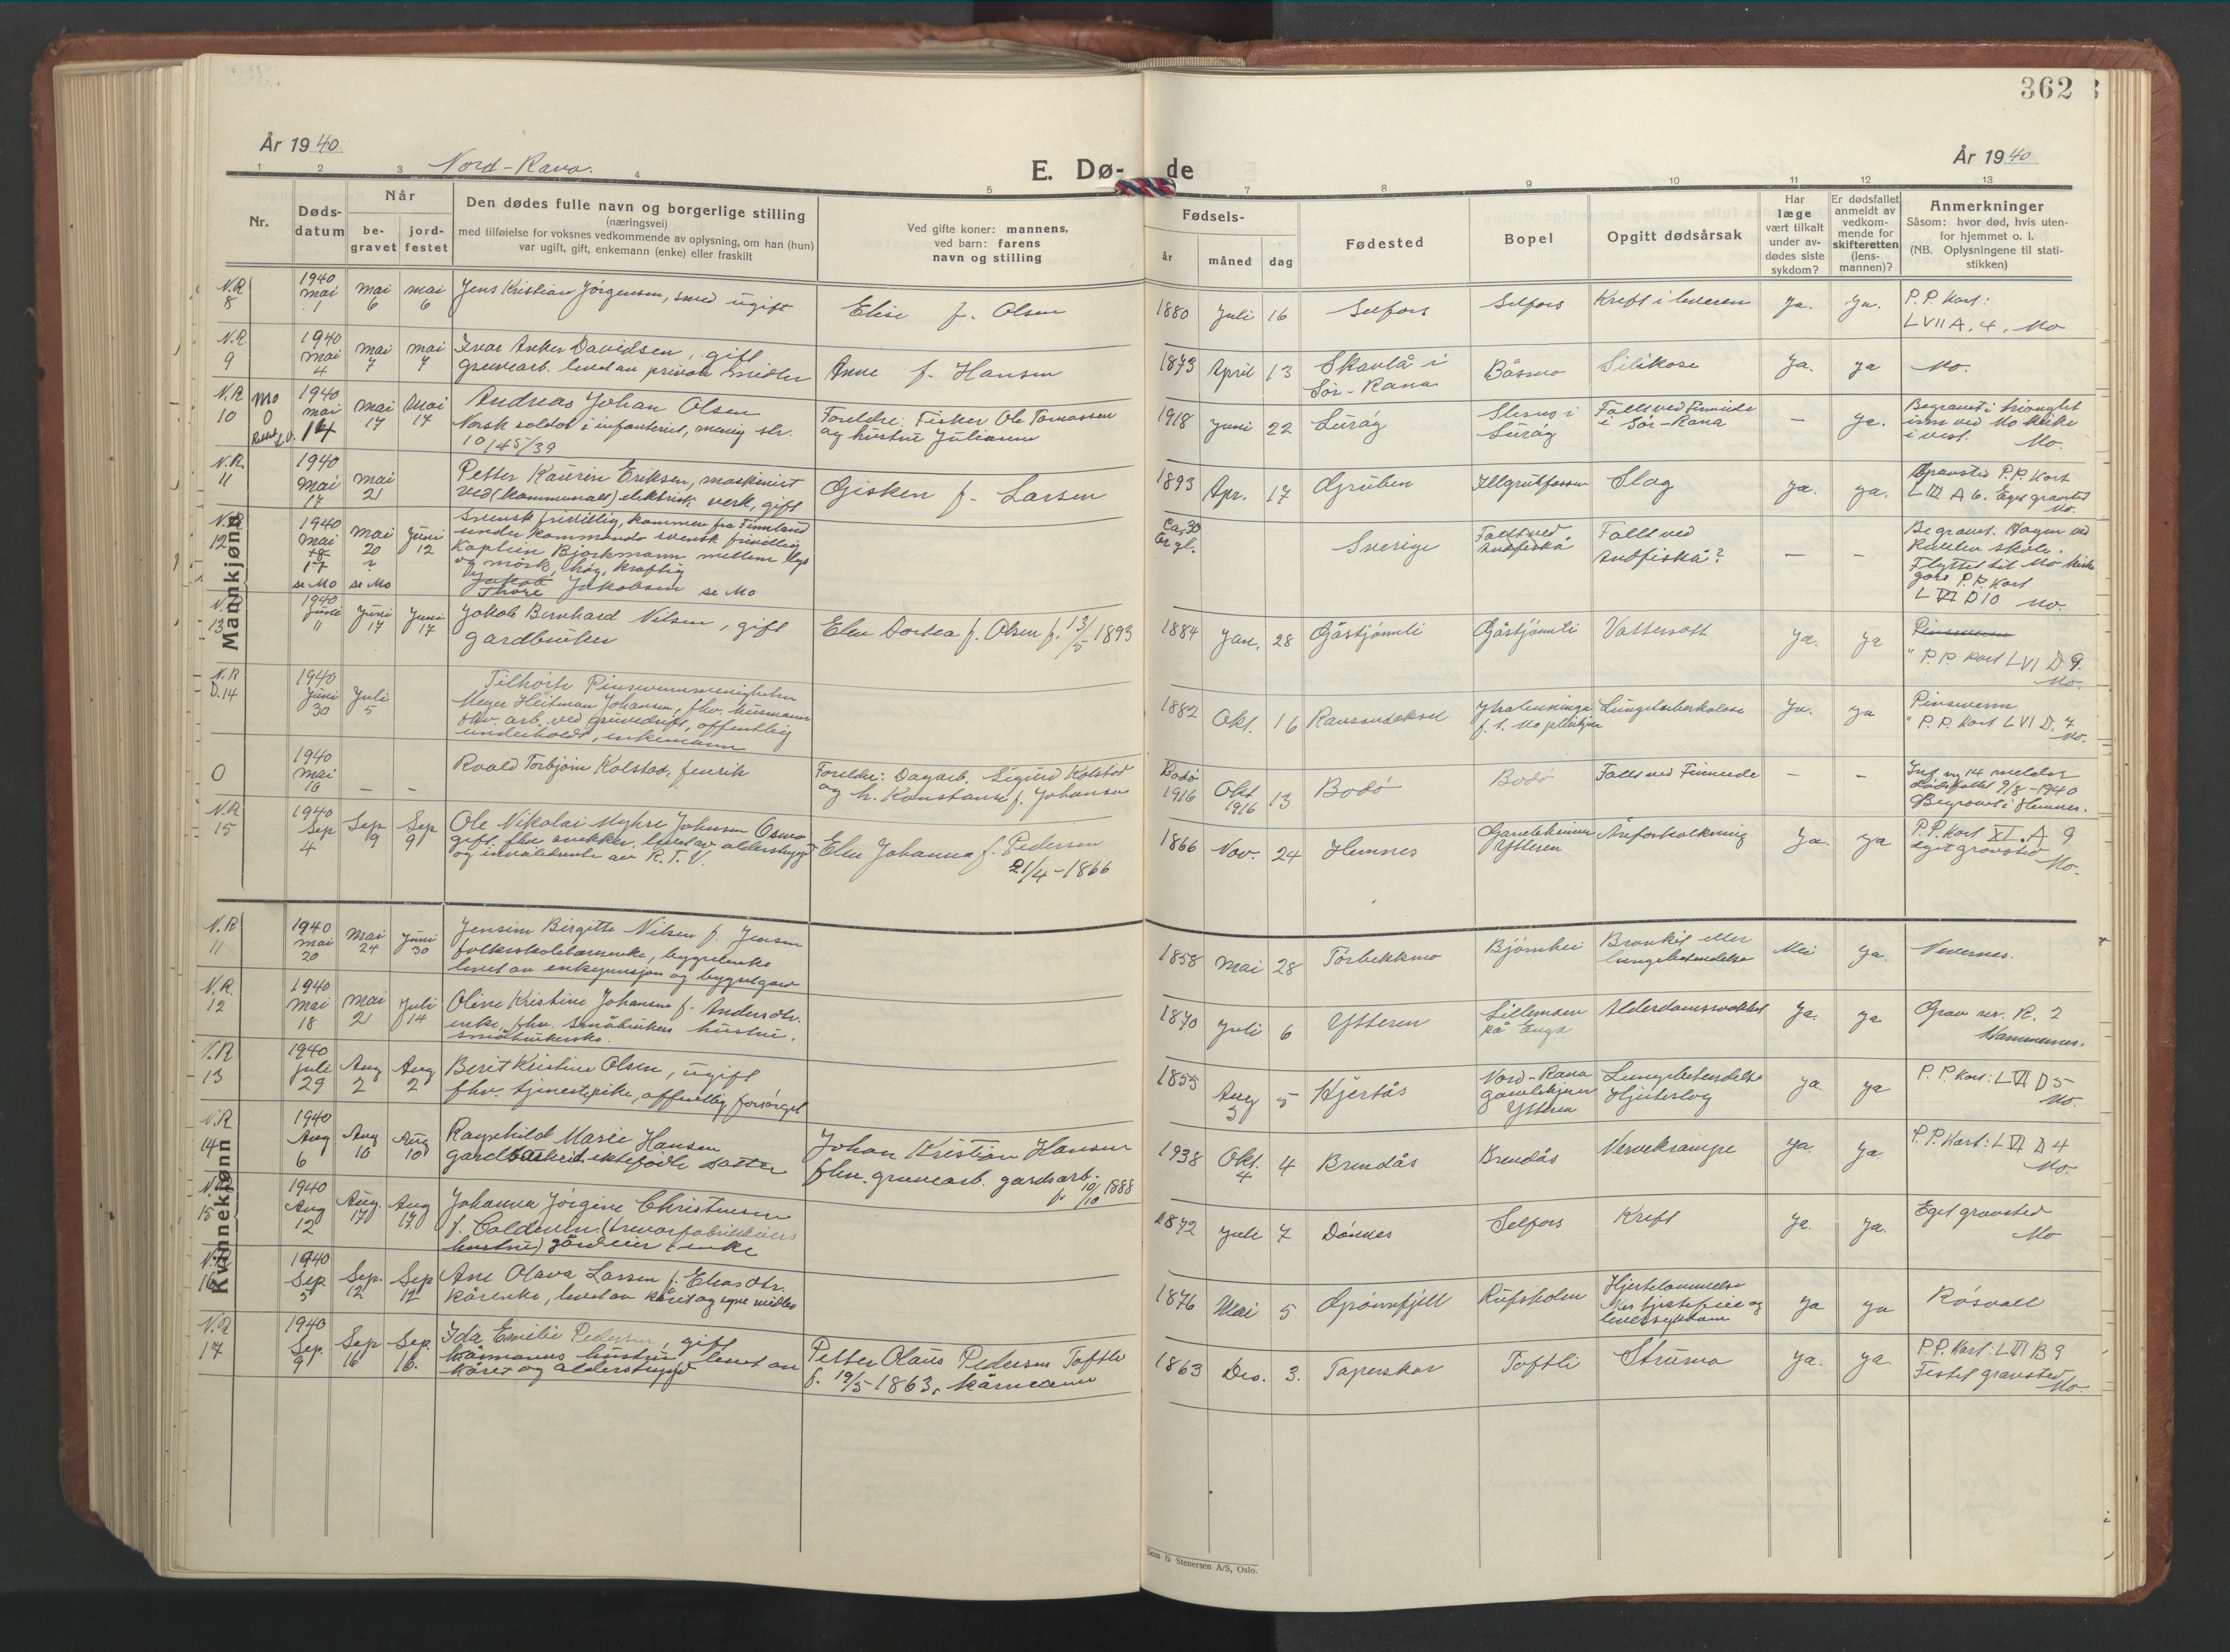 362
År 1940
Nord-Rana.
E. Dø- de
År 1940
1 2 3 4 5 7 8 9 10 11 12 13
Nr.
Døds-
datum
Når
be-
gravet
jord-
festet
Den dødes fulle navn og borgerlige stilling
(næringsvei)
med tilføielse for voksnes vedkommende av oplysning, om han (hun)
var ugift, gift, enkemann (enke) eller fraskilt
Ved gifte koner: mannens,
ved barn: farens
navn og stilling
Fødsels-
år måned dag
Fødested
Bopel
Opgitt dødsårsak
Har
læge
vært tilkalt
under av-
dødes siste
sykdom?
Er dødsfallet
anmeldt av
vedkom-
mende for
skifteretten
(lens-
mannen)?
Anmerkninger
Såsom: hvor død, hvis uten-
for hjemmet o. l.
(NB. Oplysningene til stati-
stikken)
Mannkjønn
N.R. 8
1940 mai 1
mai 6
mai 6
Jens Kristian Jørgensen, smed ugift
Elise f. Olsen
1880 Juli 16
Selfors
Selfors
Kreft i leveren
Ja.
Ja.
P.P. Kart:
LVII A. 4. Mo
N.R. 9
1940 mai 4
mai 7
mai 7
Ivar Anker Davidsen, gift
gruvearb. levet av private midler
Anne f. Hansen
1873 April 13
Skavlå i
Sør-Rana
Båsmo
Silikose
Ja.
ja
Mo.
N.R. 10
Mo
0
1940 mai 14
mai 17
Mai 17
Andreas Johan Olsen
Norsk soldat i infanteriet, menig nr.
10/45/39
Foreldre: Fisker Ole Tomassen
og hustru Julianne
1918 Juni 22
Lurøy
Lurøy
Falt ved Finneide
i Sør-Rana
—
ja.
Begravet i trianglet
inn ved Mo kirke
i vest. Mo.
N.R. 11
1940 Mai 17
mai 21
Petter Kaurin Eriksen, maskinist
ved (kommunalt) elektrisk verk, gift
Gisken f. Larsen
1893 Apr. 17
Gruben
Illgrutfossen
Slag
ja.
ja.
Gravsted P.P. Kart
L III A 6. Eget gravsted
Mo.
N.R. 12
1940 Mai 18 17
se Mo
mai 20
se Mo
Juni 12
Svensk frivillig, kommen fra Finnland
under kommando svensk frivillig
Kaptein Bjørkmann mellem lys
og mørk, høy, kraftig
Jakob
Thore Jakobsen se Mo
Ca. 30
år gl.
Sverige
Falt ved
Andfiskå
Falt ved
Andfiskå?
—
—
Begravet. Hagen ved
skole.
Flyttet til Mo kirke
gård P.P. Kart
L VI D 10 Mo.
N.R. 13
1940 Juni 11
Juni 17
Juni 17
Jakob Bernhard Nilsen, gift
gardbruker
Elen Dortea f. Olsen f. 13/5 1893
1884 Jan. 28
Gåstjønnli
Gåstjønnli
Vattersott
Ja.
Ja
Pinsevenn
" P.P. Kart L VI D 9.
Mo.
N.R. D.14
1940 Juni 30
Juli 5
Tilhørte Pinsevennmenigheten
Meyer Heitman Johansen, fhv. husmann
fhv. arb. ved gruvedrift, offentlig
underholdt, enkemann
1882 Okt. 16
Lungetuberkolose
Ja.
ja
Pinsevenn
" P.P. Kart L VI D. 7
Mo.
0
1940 mai 16
— —
Roald Torbjørn Kolstad, fenrik
Foreldre: Dagarb. Sigurd Kolstad
og h. Konstanse f. Johansen
Bodø
1916 Okt 1916 13
Bodø
Bodø
Falt ved Finneide
—
—
Inf. reg 14 melder
dødsfallet 9/8-1940
Begravet i Hemnes.
N.R. 15
1940 Sep 4
Sep 19
Sep 9
Ole Nikolai Myhre Johnsen Osmo
gift, fhv. snekker, levet av alderstrygd
og invaliderente av R.T.V.
Elen Johanna f. Pedersen
21/4-1866
1866 Nov. 24
Hemnes
Gamlehjemmet
Ytteren
Åreforkalkning
Ja.
ja
P.P. Kart XL. A 9
eget gravsted
Mo.
Kvinnekjønn
N.R. 11
1940 mai 20
Mai 24
Juni 30
Jensine Birgitte Nilsen f. Jensen
folkeskolelærerenke, bygselenke
levet av enkepensjon og bygselgard
1858 Mai 28
Torbekkmo
Bjørnhei
Bronkit eller
lungebetendelse
Nei
Ja.
Nevernes.
N.R. 12
1940 Mai 18
mai 21
Juli 14
Oline Kristine Johansen f. Andersdtr.
enke, fhv. småbrukers hustru,
småbrukerske.
1870 Juli 6
Ytteren
Lillemoen
på Enga
Alderdomssvakhet
Ja.
ja
Grav nr. R. 2
Hammernes.
N.R. 13
1940 Juli 29
Aug 2
Aug 2
Berit Kristine Olsen, ugift
fhv. tjenestepike, offentlig forsørget
1855 Aug 5
Hjertås
Nord-Rana
gamlehjem
Ytteren
Lungebetendelse
Hjerteslag
ja.
ja
P.P. Kart: L VI D 5
Mo.
N.R. 14
1940 Aug 6
Aug 10
Aug 10
Ragnhild Marie Hansen
gardbruker ektefødte datter
Johan Kristian Hansen
fhv. gruvearb. gardsarb.
f. 10/10 1888
1938 Okt. 4
Brendås
Brendås
Nervekrampe
Ja.
Ja.
P.P. Kart: L VI D 4
Mo.
N.R. 15
1940 Aug 12
Aug. 17
Aug 17
Johanna Jørgine Christensen
f. Coldevin (trevarefabrikkeiers
hustru) gårdeier enke
1872 Juli 7
Dønnes
Selfors
Kreft
Ja.
Ja.
Eget gravsted
Mo
N.R. 16
1940 Sep 5
Sep. 12
Sep 12
Ane Olava Larsen f. Eliasdtr.
kårenke, levet av kåret og egne midler
1876 Mai 5
Grønnfjell
Rufsholm
Hjertelammelse
leversykdom
ja
ja
Røsvoll
N.R. 17
1940 Sep. 9
Sep 16
Sep. 16.
Ida Emilie Pedersen, gift
kårmanns hustru levet av
kåret og alderstrygd
Petter Olaus Pedersen Toftli
f. 19/5-1863, kårmann
1863 Des. 3.
Taperskar
Toftli
Struma
Ja.
Ja.
P.P. Kart: L VI B 9
Festet gravsted
Mo.
& Stenersen A/S, Oslo.